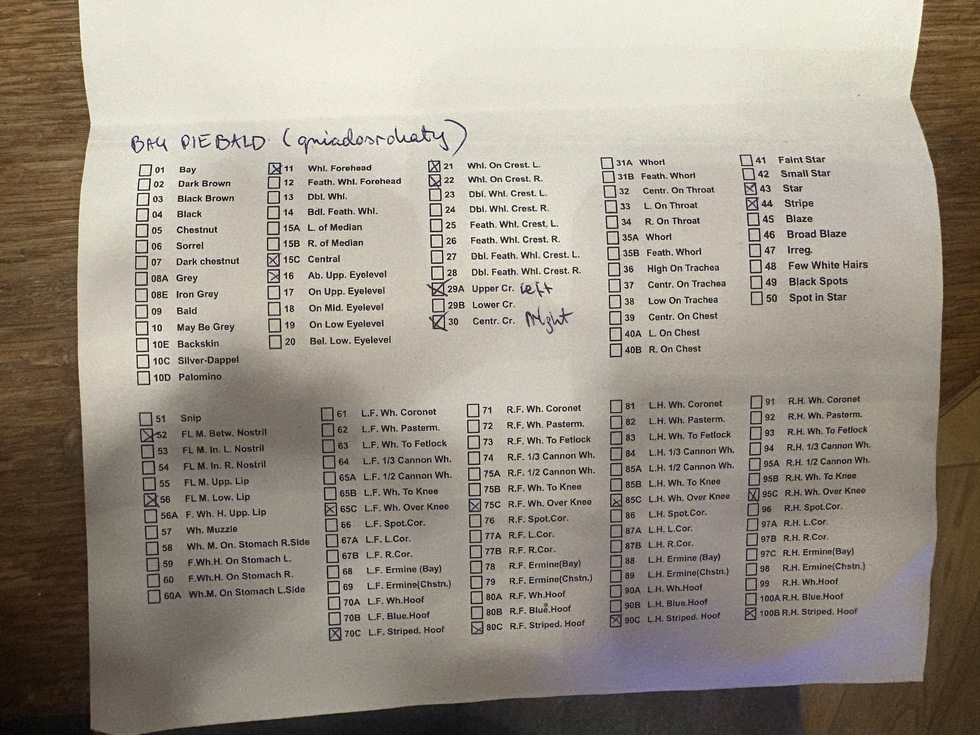 BAY PIEBALD (gniadosrokaty)
01 Bay
02 Dark Brown
03 Black Brown
04 Black
05 Chestnut
06 Sorrel
07 Dark chestnut
08A Grey
08E Iron Grey
09 Bald
10 May Be Grey
10E Backskin
10C Silver-Dappel
10D Palomino
11 Whl. Forehead
12 Feath. Whl. Forehead
13 Dbl. Whl.
14 Bdl. Feath. Whl.
15A L. of Median
15B R. of Median
15C Central
16 Ab. Upp. Eyelevel
17 On Upp. Eyelevel
18 On Mid. Eyelevel
19 On Low Eyelevel
20 Bel. Low. Eyelevel
21 Whl. On Crest. L.
22 Whl. On Crest. R.
23 Dbl. Whl. Crest. L.
24 Dbl. Whl. Crest. R.
25 Feath. Whl. Crest. L.
26 Feath. Whl. Crest. R.
27 Dbl. Feath. Whl. Crest. L.
28 Dbl. Feath. Whl. Crest. R.
29A Upper Cr. left
29B Lower Cr.
30 Centr. Cr. Right
31A Whorl
31B Feath. Whorl
32 Centr. On Throat
33 L. On Throat
34 R. On Throat
35A Whorl
35B Feath. Whorl
36 High On Trachea
37 Centr. On Trachea
38 Low On Trachea
39 Centr. On Chest
40A L. On Chest
40B R. On Chest
41 Faint Star
42 Small Star
43 Star
44 Stripe
45 Blaze
46 Broad Blaze
47 Irreg.
48 Few White Hairs
49 Black Spots
50 Spot in Star
51 Snip
52 FL M. Betw. Nostril
53 FL M. In. L. Nostril
54 FL M. In R. Nostril
55 FL M. Upp. Lip
56 FL M. Low. Lip
56A F. Wh. H. Upp. Lip
57 Wh. Muzzle
58 Wh. M. On. Stomach R.Side
59 F.Wh.H. On Stomach L.
60 F.Wh.H. On Stomach R.
60A Wh.M. On Stomach L.Side
61 L.F. Wh. Coronet
62 L.F. Wh. Pasterm.
63 L.F. Wh. To Fetlock
64 L.F. 1/3 Cannon Wh.
65A L.F. 1/2 Cannon Wh.
65B L.F. Wh. To Knee
65C L.F. Wh. Over Knee
66 L.F. Spot.Cor.
67A L.F. L.Cor.
67B L.F. R.Cor.
68 L.F. Ermine (Bay)
69 L.F. Ermine(Chstn.)
70A L.F. Wh.Hoof
70B L.F. Blue.Hoof
70C L.F. Striped. Hoof
71 R.F. Wh. Coronet
72 R.F. Wh. Pasterm.
73 R.F. Wh. To Fetlock
74 R.F. 1/3 Cannon Wh.
75A R.F. 1/2 Cannon Wh.
75B R.F. Wh. To Knee
75C R.F. Wh. Over Knee
76 R.F. Spot.Cor.
77A R.F. L.Cor.
77B R.F. R.Cor.
78 R.F. Ermine(Bay)
79 R.F. Ermine(Chstn.)
80A R.F. Wh.Hoof
80B R.F. Blue.Hoof
80C R.F. Striped. Hoof
81 L.H. Wh. Coronet
82 L.H. Wh. Pasterm.
83 L.H. Wh. To Fetlock
84 L.H. 1/3 Cannon Wh.
85A L.H. 1/2 Cannon Wh.
85B L.H. Wh. To Knee
85C L.H. Wh. Over Knee
86 L.H. Spot.Cor.
87A L.H. L.Cor.
87B L.H. R.Cor.
88 L.H. Ermine (Bay)
89 L.H. Ermine(Chstn.)
90A L.H. Wh.Hoof
90B L.H. Blue.Hoof
90C L.H. Striped. Hoof
91 R.H. Wh. Coronet
92 R.H. Wh. Pasterm.
93 R.H. Wh. To Fetlock
94 R.H. 1/3 Cannon Wh.
95A R.H. 1/2 Cannon Wh.
95B R.H. Wh. To Knee
95C R.H. Wh. Over Knee
96 R.H. Spot.Cor.
97A R.H. L.Cor.
97B R.H. R.Cor.
97C R.H. Ermine(Bay)
98 R.H. Ermine(Chstn.)
99 R.H. Wh.Hoof
100A R.H. Blue.Hoof
100B R.H. Striped. Hoof